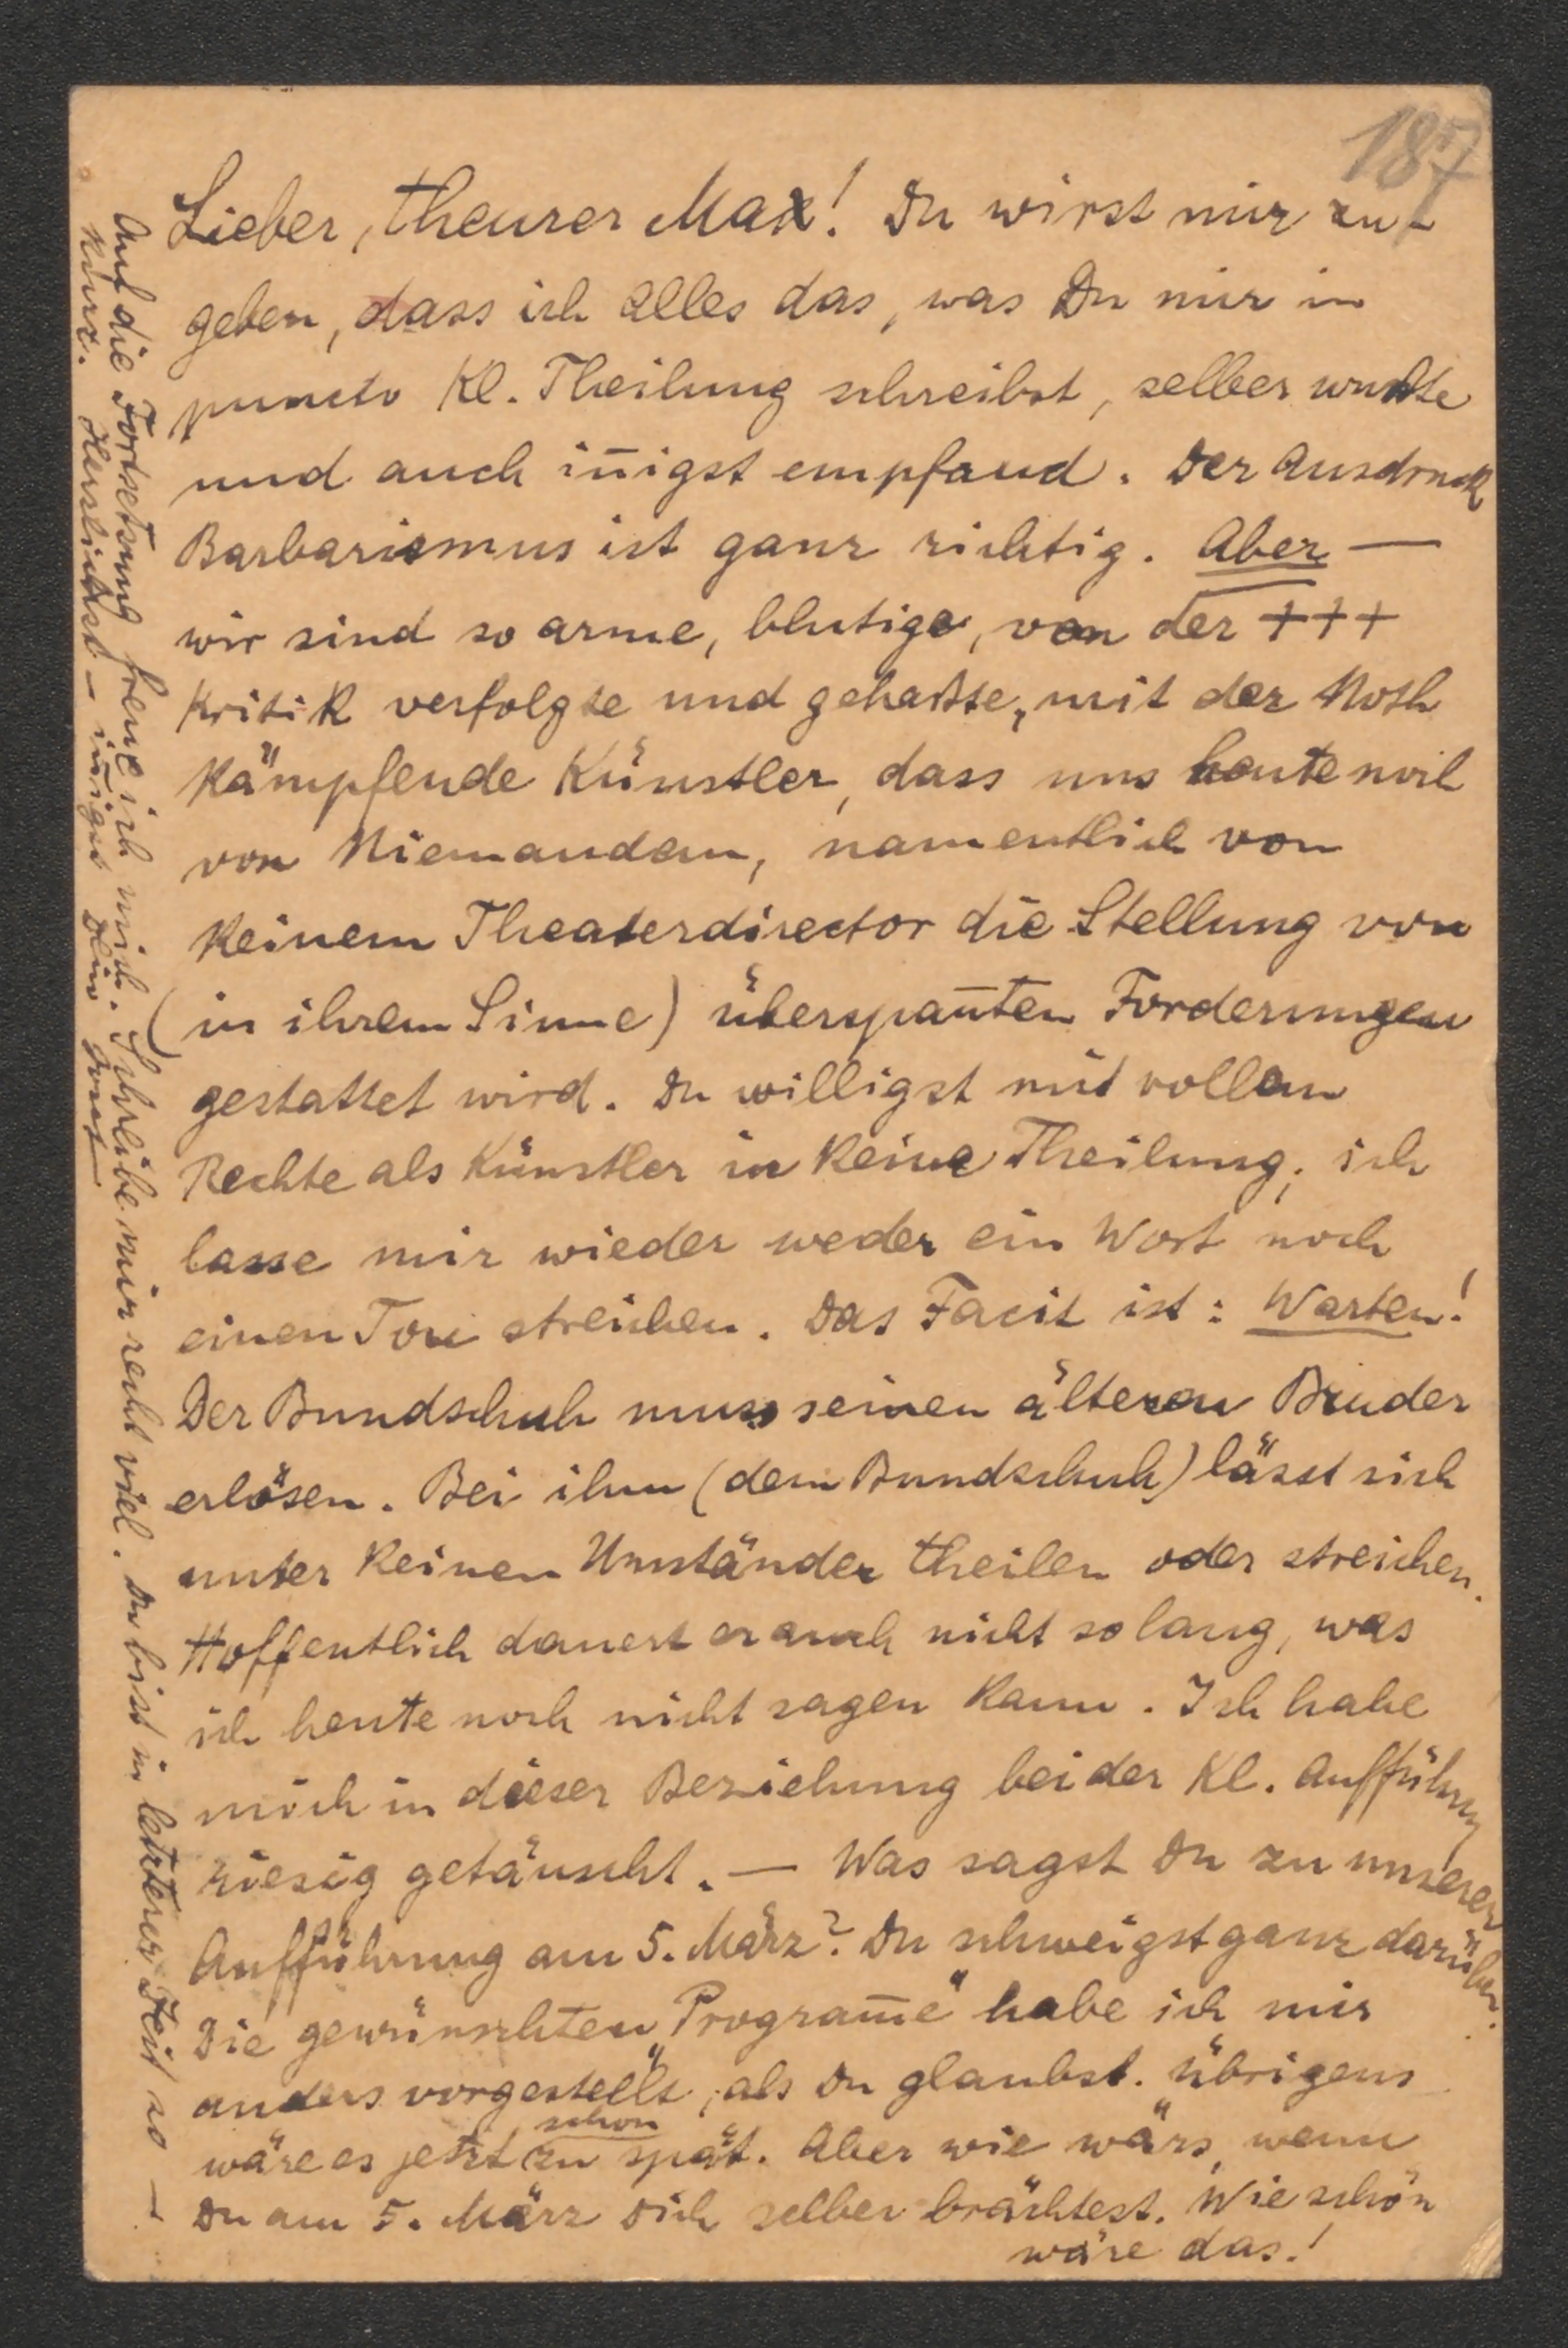 187
Lieber, theurer Max! Du wirst mir zu-
geben, dass ich alles das, was Du mir in
puncto Kl. Theilung schreibst, selber wußte
und auch iñigst empfand. Der Ausdruck
Barbarismus ist ganz richtig. Aber —
wir sind so arme, blutige, von der +++
Kritik verfolgte und gehaßte, mit der Noth
kämpfende Künstler, dass uns heute noch
von Niemandem, namentlich von
keinem Theaterdirector die Stellung von
(in ihrem Sinne) überspañten Forderungen
gestattet wird. Du willigst mit vollem
Rechte als Künstler in keine Theilung; ich
lasse mir wieder weder ein Wort noch
einen Ton streichen. Das Facit ist: Warten!
Der Bundschuh muss seinen älteren Bruder
erlösen. Bei ihm (dem Bundschuh) lässt sich
unter keinen Umständen theilen oder streichen.
Hoffentlich dauert er auch nicht so lang, was
ich heute noch nicht sagen kann. Ich habe
mich in dieser Beziehung bei der Kl. Aufführung
riesig getäuscht. — Was sagst Du zu unserer
Aufführung am 5. März? Du schweigst ganz darüber.
Die gewünschten „Programe̅" habe ich mir
anders vorgestellt, als Du glaubst. Übrigens
wäre es jetzt zu spät. Aber wie wärs, wenn
schon
Du am 5. März Dich selber brächtest. Wie schön
wäre das!
Auf die Fortsetzung freue ich mich. Schreibe mir recht viel. Du bist in letzterer Zeit so —
kurz. Herzlichst – iñigst Dein